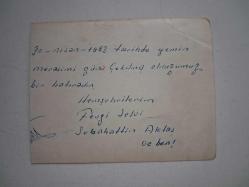 30-nisan-1983 tarihde yemin
merasimi günü çekilmiş olduğumuz
bir hatıradır
Hemşehrilerim
Fevzi
Sebahattin Aktaş
ve ben